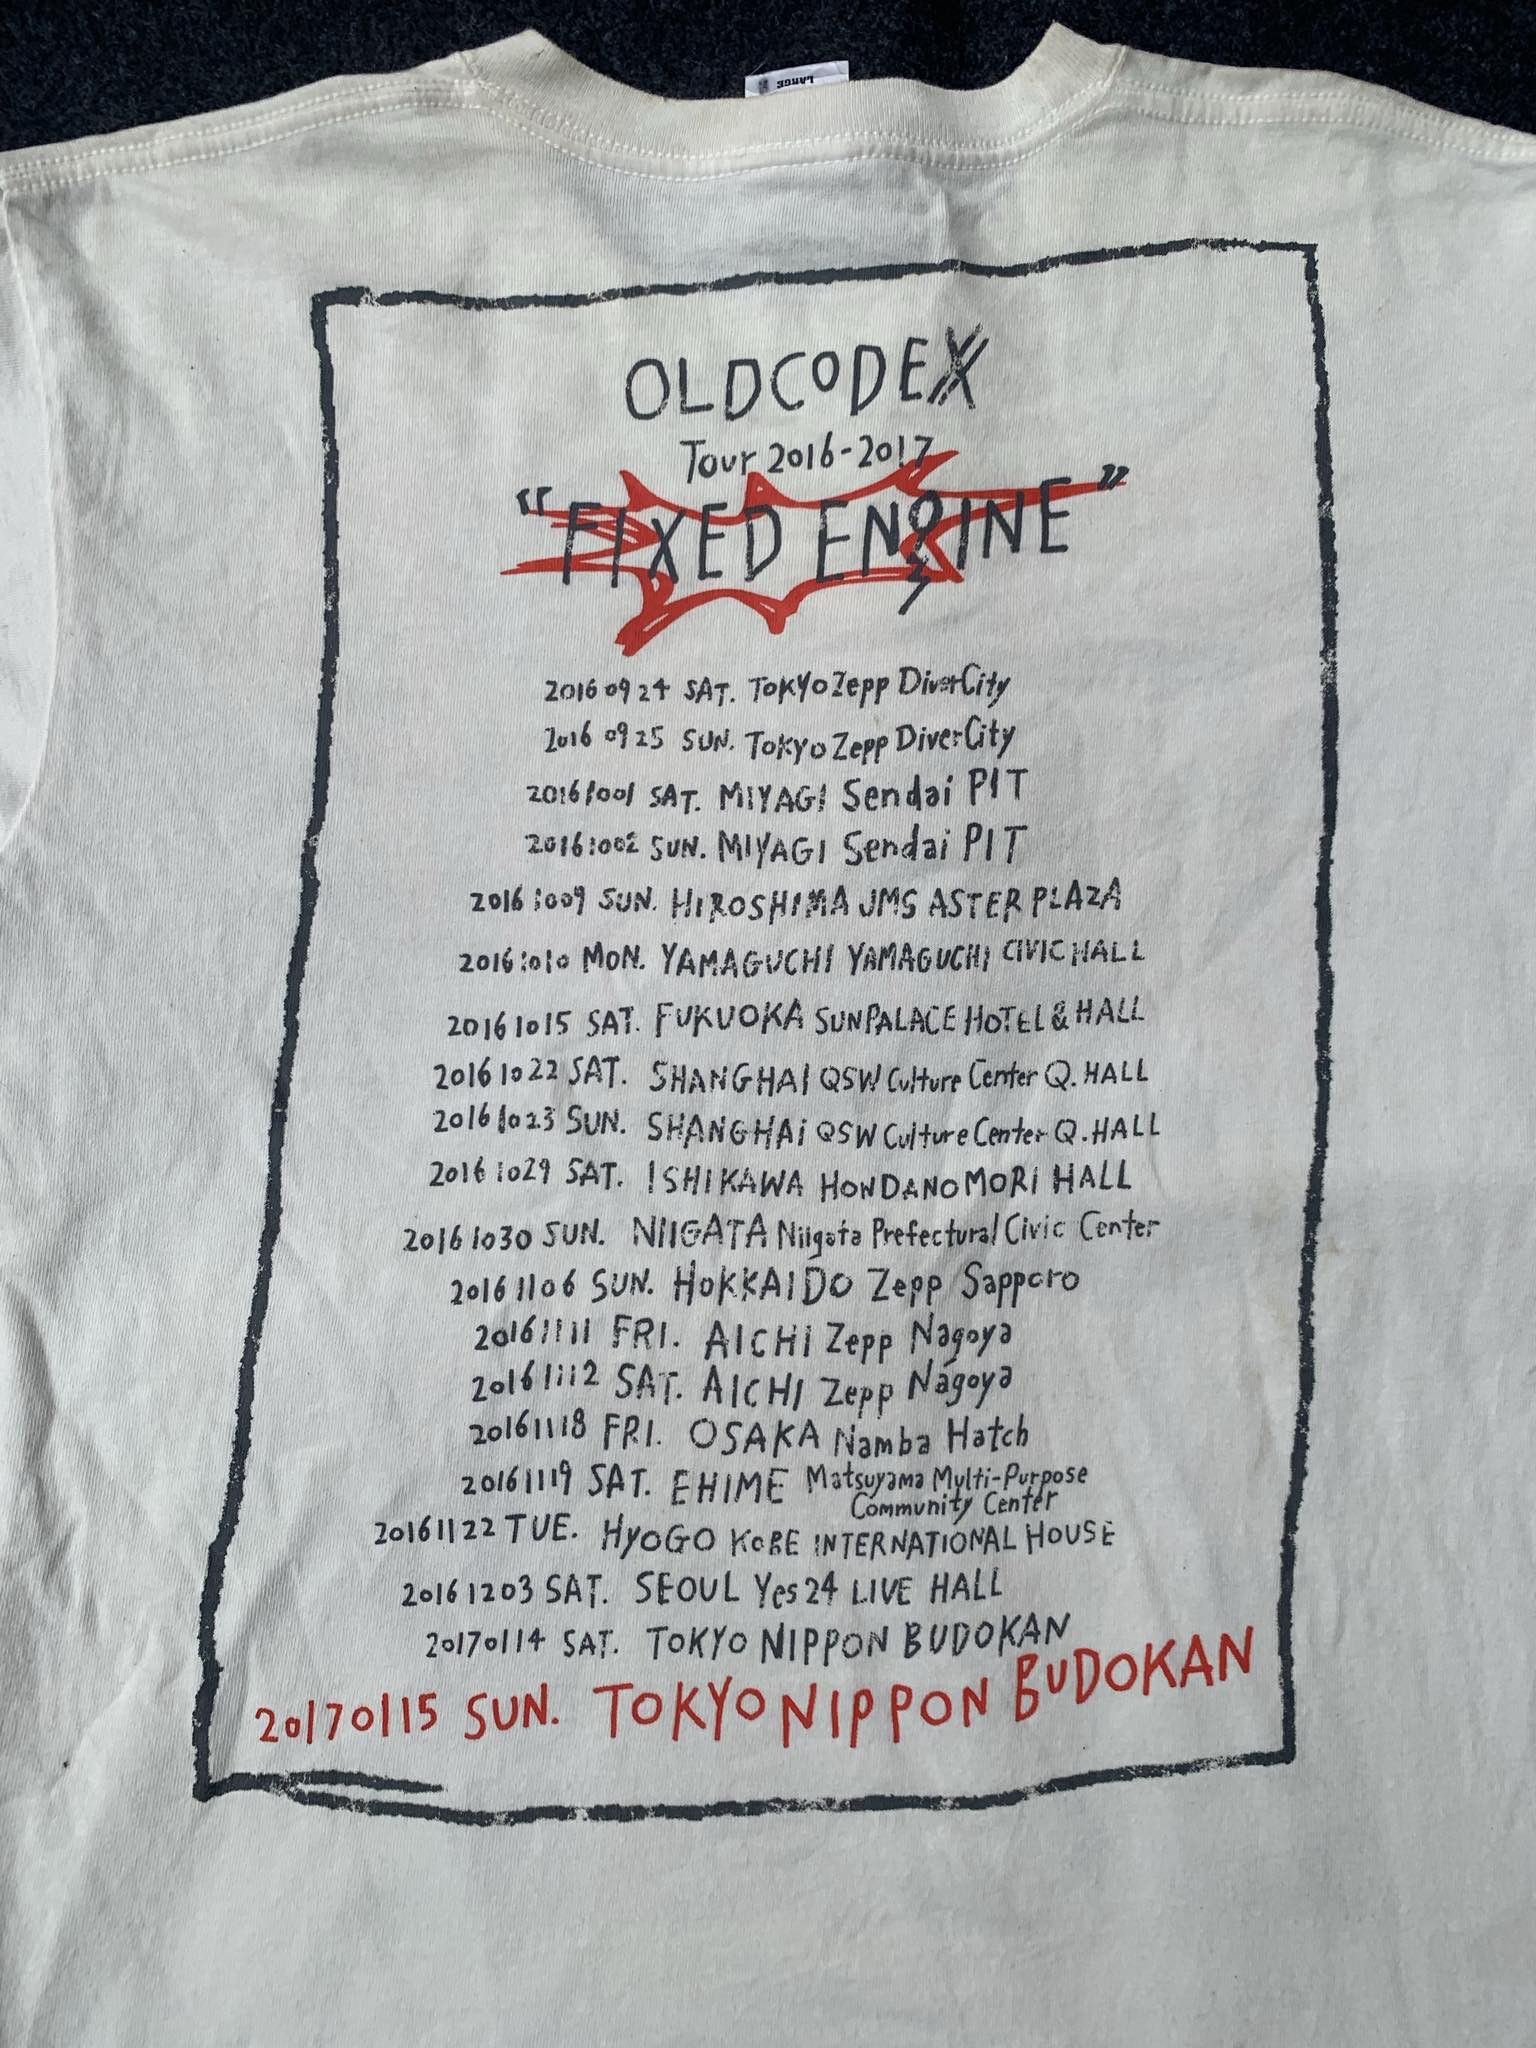 LARGE
OLDCODEX
Tour 2016-2017
"FIXED ENGINE"
2016 09 24 SAT. TOKYO Zepp DiverCity
2016 09 25 SUN. TOKYO Zepp DiverCity
2016 10 01 SAT. MIYAGI Sendai PIT
2016 10 02 SUN. MIYAGI Sendai PIT
2016 10 09 SUN. HIROSHIMA JMS ASTER PLAZA
2016 10 10 MON. YAMAGUCHI YAMAGUCHI CIVIC HALL
2016 10 15 SAT. FUKUOKA SUNPALACE HOTEL & HALL
2016 10 22 SAT. SHANGHAI QSW Culture Center Q. HALL
2016 10 23 SUN. SHANGHAI QSW Culture Center Q. HALL
2016 10 29 SAT. ISHIKAWA HONDANOMORI HALL
2016 10 30 SUN. NIIGATA Niigata Prefectural Civic Center
2016 11 06 SUN. HOKKAIDO Zepp Sapporo
2016 11 11 FRI. AICHI Zepp Nagoya
2016 11 12 SAT. AICHI Zepp Nagoya
2016 11 18 FRI. OSAKA Namba Hatch
2016 11 19 SAT. EHIME Matsuyama Multi-Purpose
Community Center
2016 11 22 TUE. HYOGO KOBE INTERNATIONAL HOUSE
2016 12 03 SAT. SEOUL Yes24 LIVE HALL
2017 01 14 SAT. TOKYO NIPPON BUDOKAN
2017 01 15 SUN. TOKYO NIPPON BUDOKAN